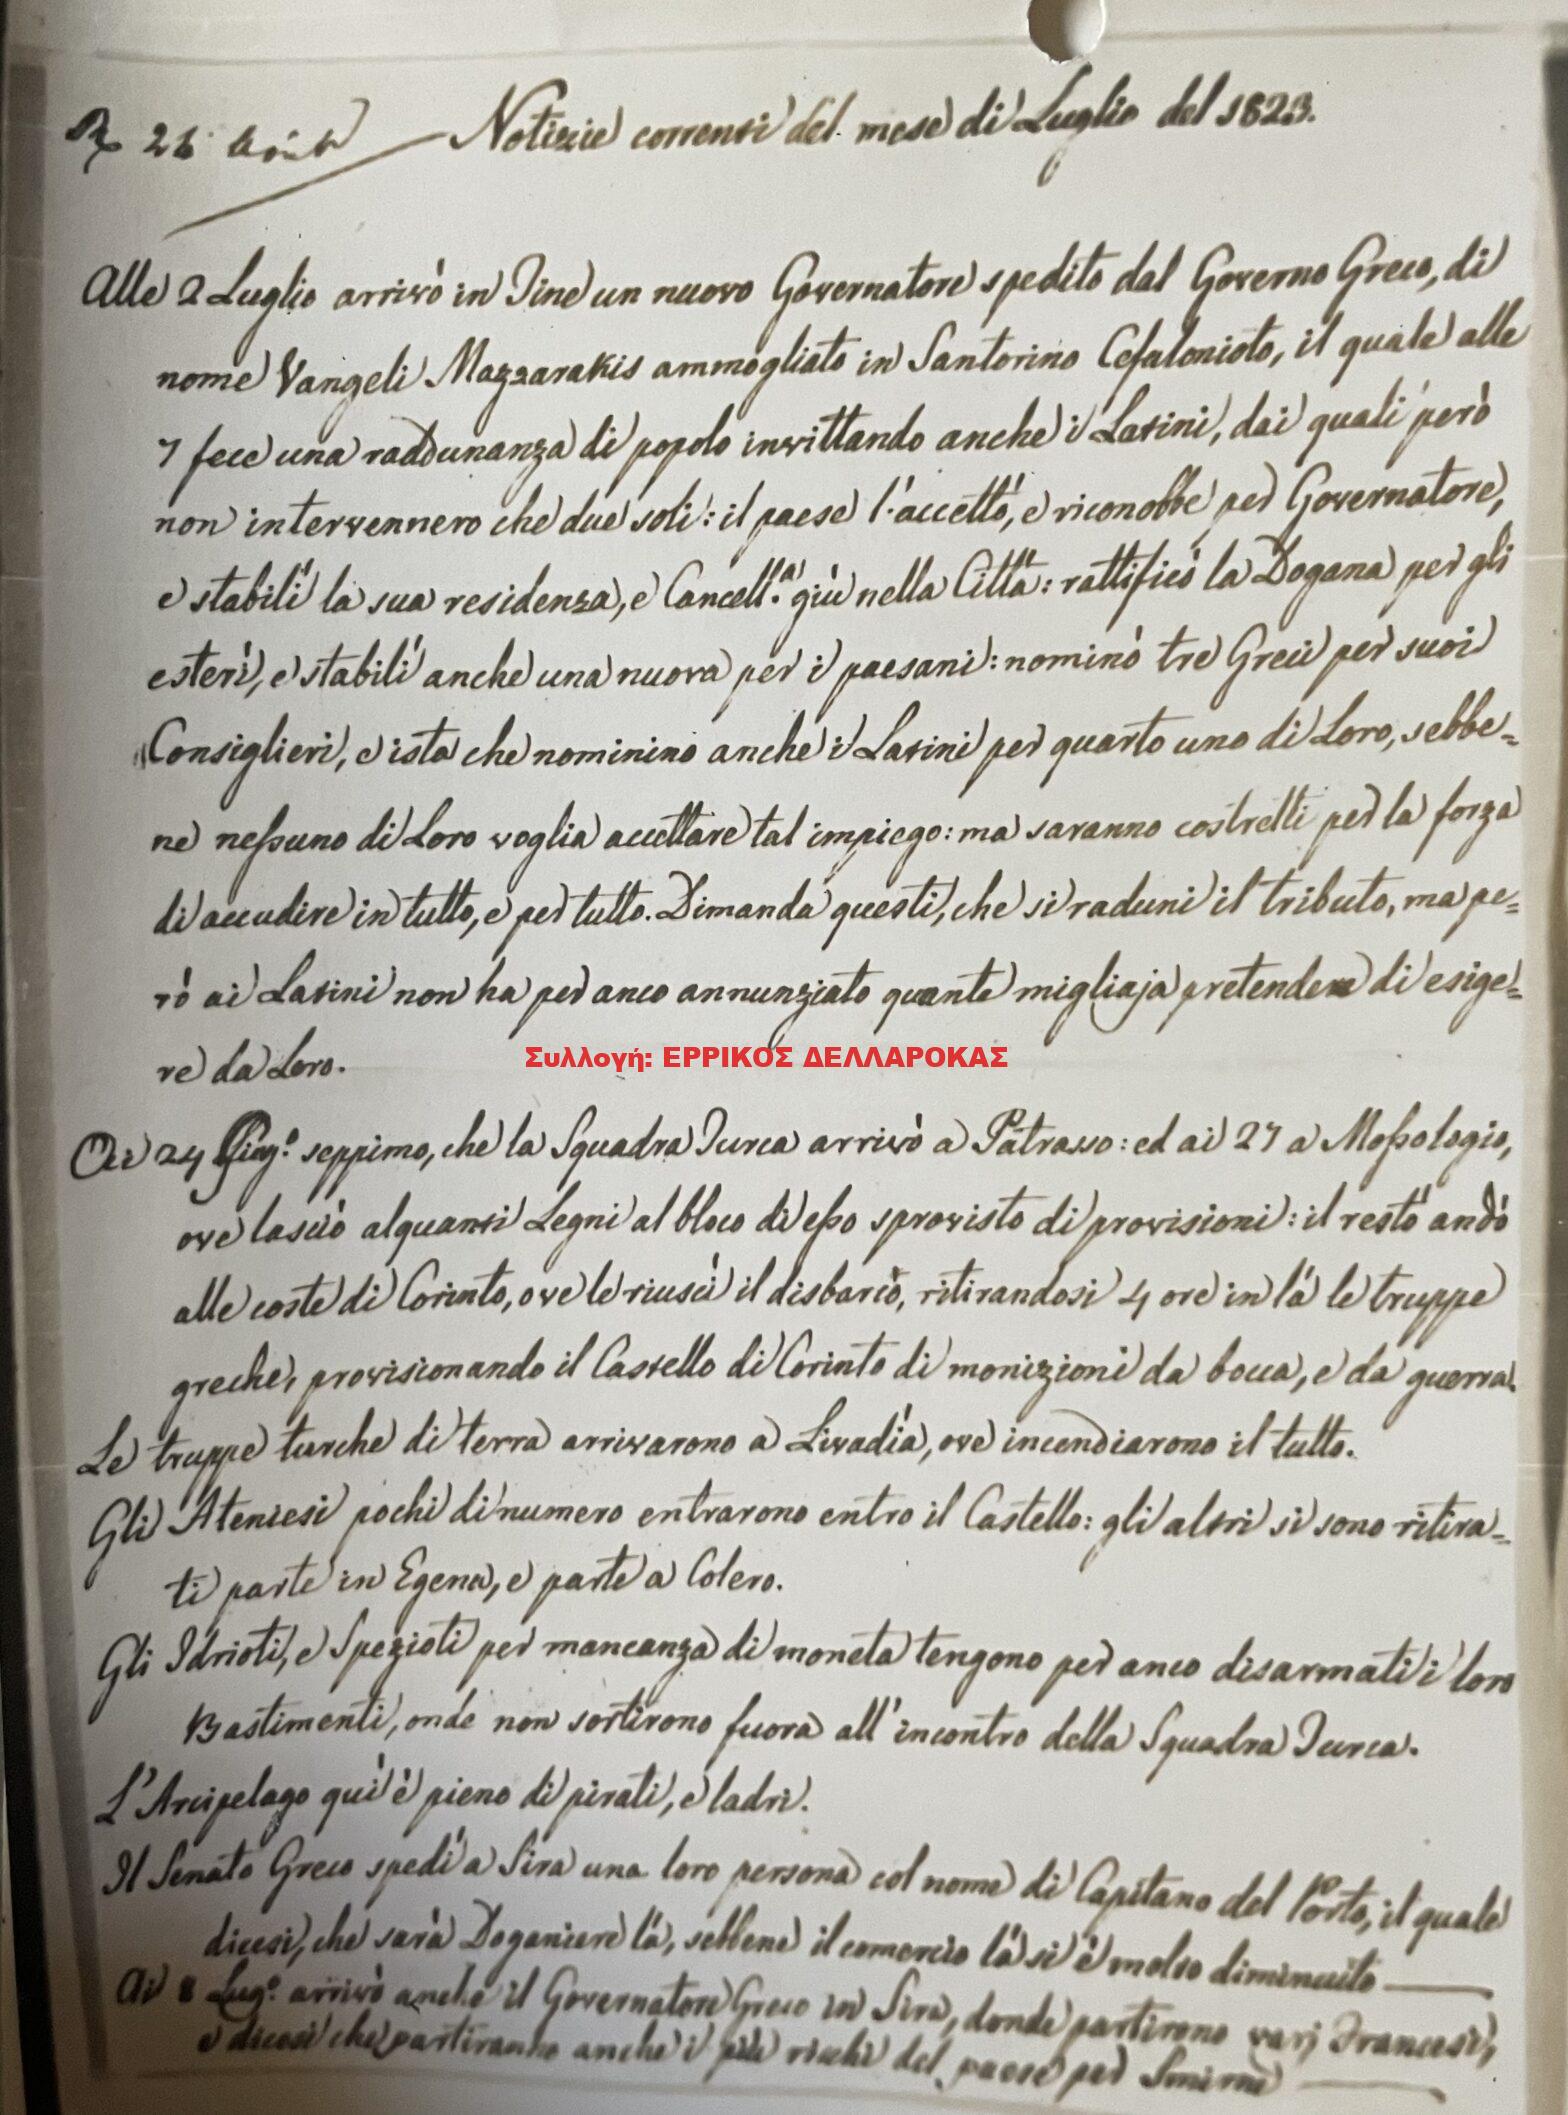 R 26 Août Notizie correnti del mese di Luglio del 1823.
Alle 2 Luglio arrivò in Tine un nuovo Governatore spedito dal Governo Greco, di
nome Vangeli Mazzarakis ammogliato in Santorino Cefalonioto, il quale alle
7 fece una raddunanza di popolo invittando anche i Latini, dai quali però
non intervennero che due soli: il paese l'accettò, e riconobbe per Governatore,
e stabilì la sua residenza, e Cancell.a giù nella Città: rattificò la Dogana per gli
esteri, e stabilì anche una nuova per i paesani: nominò tre Greci per suoi
Consiglieri, e ista che nominino anche i Latini per quarto uno di Loro, sebbe=
ne nessuno di Loro voglia accettare tal impiego: ma saranno costretti per la forza
di accudire in tutto, e per tutto. Dimanda questi, che si raduni il tributo, ma pe=
rò ai Latini non ha per anco annunziato quante migliaja pretende di esige=
re da Loro.
Συλλογή: ΕΡΡΙΚΟΣ ΔΕΛΛΑΡΟΚΑΣ
Ai 24 Giug.o seppimo, che la Squadra Turca arrivò a Patrasso: ed ai 27 a Missologio,
ove lasciò alquanti Legni al bloco di esso sprovisto di provisioni: il resto andò
alle coste di Corinto, ove le riuscì il disbarco, ritirandosi 4 ore in là le truppe
greche, provisionando il Castello di Corinto di monizioni da bocca, e da guerra.
Le truppe turche di terra arrivarono a Livadia, ove incendiarono il tutto.
Gli Ateniesi pochi di numero entrarono entro il Castello: gli altri si sono ritira=
ti parte in Egena, e parte a Colero.
Gli Idrioti, e Spezioti per mancanza di moneta tengono per anco disarmati i loro
Bastimenti, onde non sortirono fuora all'incontro della Squadra Turca.
L'Arcipelago quì è pieno di pirati, e ladri.
Il Senato Greco spedì a Sira una loro persona col nome di Capitano del Porto, il quale
dicesi, che sarà Doganiere là, sebbene il comercio là si è molto diminuito
Ai 8 Lug.o arrivò anche il Governatore Greco in Sira, donde partirono varj Francesi,
e dicesi che partiranno anche i più ricchi del paese per Smirne